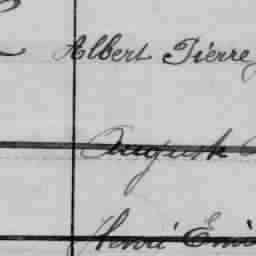 Albert Pierre
August
Henri Emi